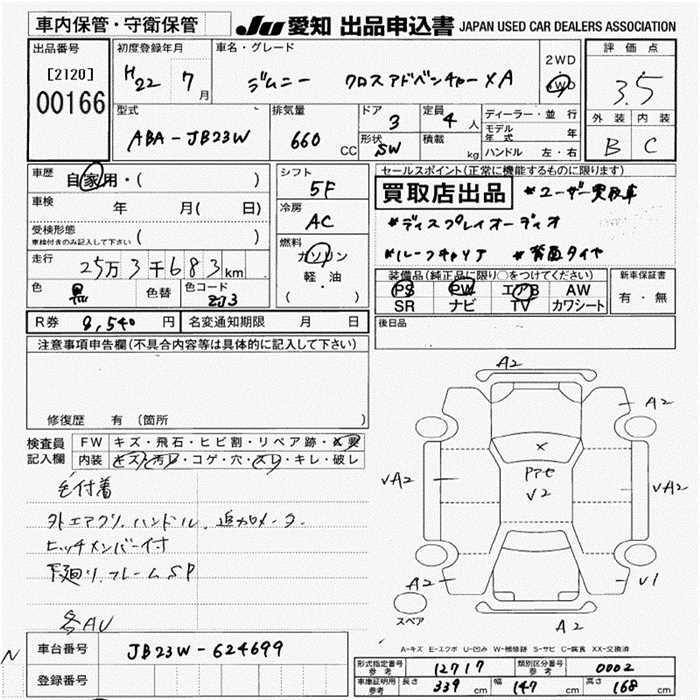 車内保管・守衛保管
JU 愛知 出品申込書 JAPAN USED CAR DEALERS ASSOCIATION
出品番号
[2120]
00166
初度登録年月
H22 7月
車名・グレード
ジムニー クロスアドベンチャーXA
2WD
4WD
評価点
3.5
型式
ABA-JB23W
排気量
660 CC
ドア
3
定員
4人
形状
SW
積載
kg
ディーラー・並行
モデル年式 年
ハンドル 左・右
外装 内装
B C
車歴 自家用・( )
車検 年 月( 日)
受検形態
車検付きのみ記入して下さい ( )
走行 25万3千683km
色 黒 色替 色コード ZJ3
シフト
5F
冷房
AC
燃料
ガソリン
軽・油
( ・ )
セールスポイント(正常に機能するものに限ります)
買取店出品 *ユーザー買取車
*ディスプレイオーディオ
*ルーフキャリア *背面タイヤ
装備品(純正品に限り○をつけてください)
PS PW エアB AW
SR ナビ TV カワシート
新車保証書
有・無
R券 8,540円 名変通知期限 月 日
後日品
注意事項申告欄(不具合内容等は具体的に記入して下さい)
修復歴 有(箇所 )
検査員記入欄
FW キズ・飛石・ヒビ割・リペア跡・X要
内装 キズ・汚れ・コゲ・穴・スレ・キレ・破レ
毛付着
外エアクリ.ハンドル.追加メーター
ヒッチメンバー付
下廻り.フレームSP
各AU
A2
A2
X
アセ
V2
VA2
VA2
A2
V1
A2
スペア
A-キズ E-エクボ U-凹み W-補修跡 S-サビ C-腐食 XX-交換済
N
車台番号 JB23W-624699
登録番号
形式指定番号 参考 12717 類別区分番号 参考 0002
車庫証明用 参考 長さ 339cm 幅 147cm 高さ 168cm